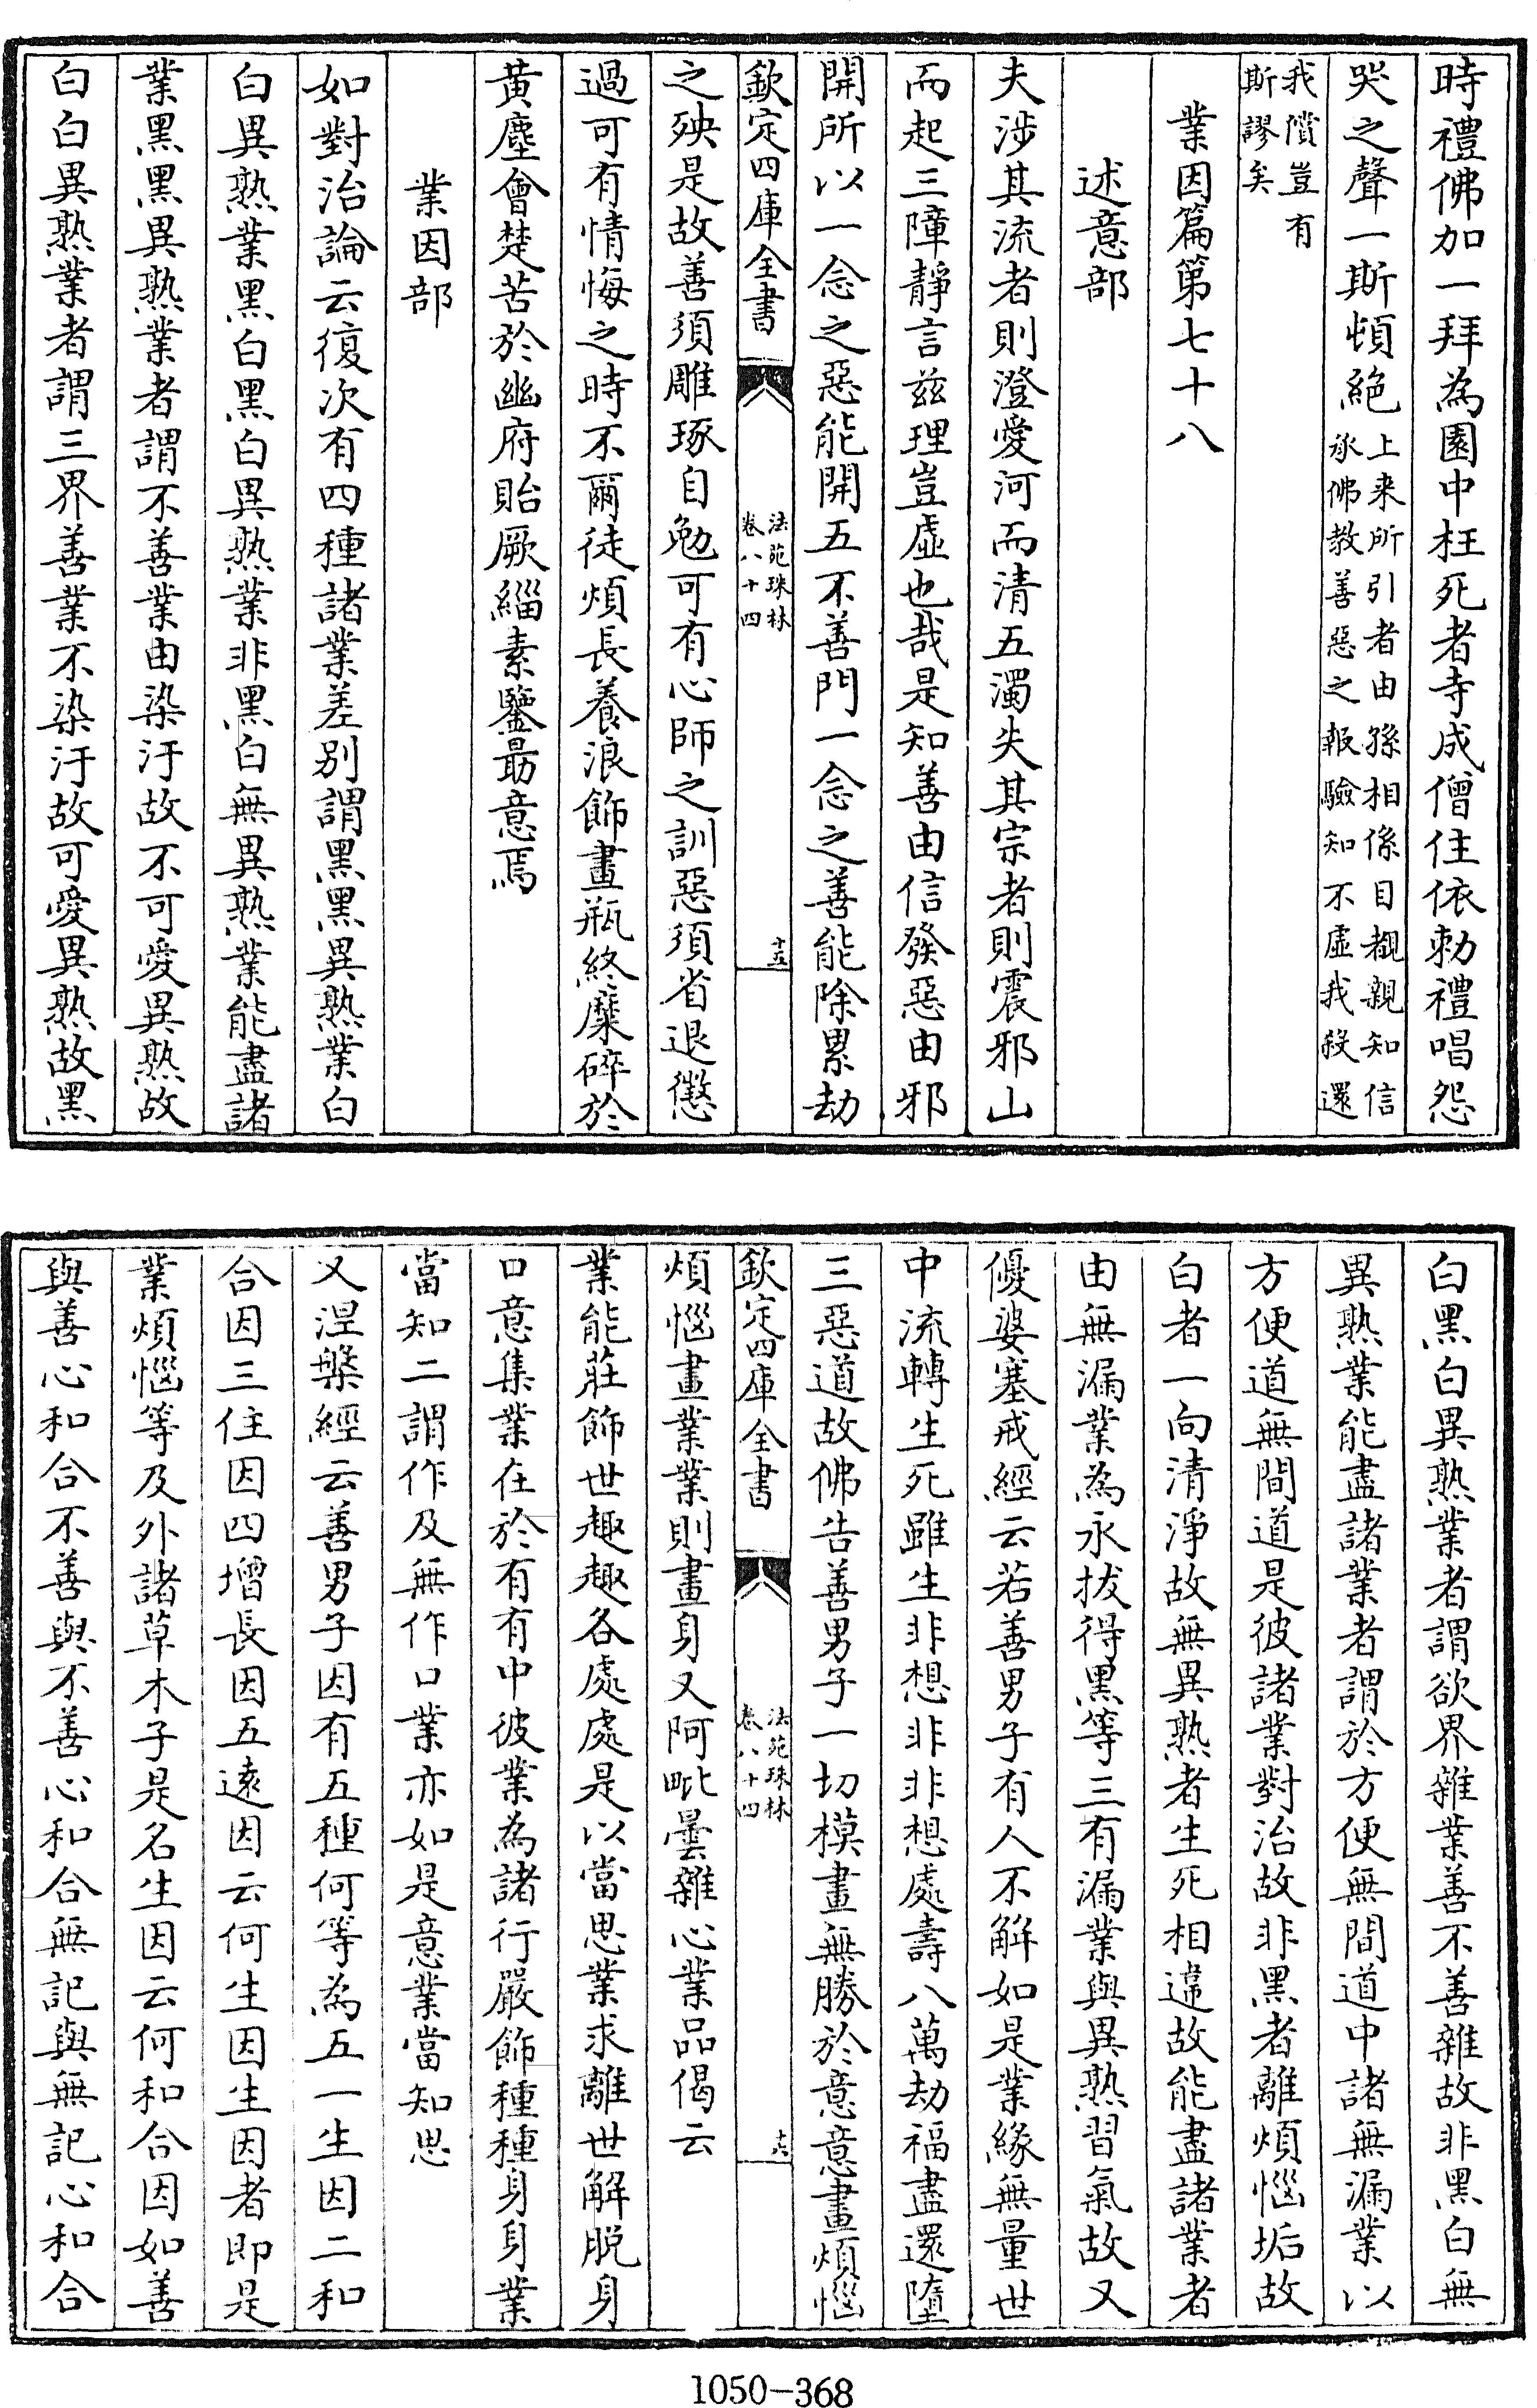 時禮佛加一拜為園中枉死者寺成僧住依勅禮唱怨
哭之聲一斯頓絕上来所引者由孫相係目覩親知信承佛教善惡之報驗知不虛我殺還
我償豈有斯謬矣
業因篇第七十八
述意部
夫涉其流者則澄愛河而清五濁失其宗者則震邪山
而起三障靜言兹理豈虛也哉是知善由信發惡由邪
開所以一念之惡能開五不善門一念之善能除累劫
欽定四庫全書
法苑珠林
卷八十四
十五
之殃是故善須雕琢自勉可有心師之訓惡須省退懲
過可有情悔之時不爾徒煩長養浪飾畫瓶終糜碎於
黄塵會楚苦於幽府貽厥緇素鑒最意焉
業因部
如對治論云復次有四種諸業差别謂黑黑異熟業白
白異熟業黑白黑白異熟業非黑白無異熟業能盡諸
業黑黑異熟業者謂不善業由染汙故不可愛異熟故
白白異熟業者謂三界善業不染汙故可愛異熟故黑
白黑白異熟業者謂欲界雜業善不善雜故非黑白無
異熟業能盡諸業者謂於方便無間道中諸無漏業以
方便道無間道是彼諸業對治故非黑者離煩惱垢故
白者一向清淨故無異熟者生死相違故能盡諸業者
由無漏業為永拔得黑等三有漏業與異熟習氣故又
優婆塞戒經云若善男子有人不解如是業緣無量世
中流轉生死雖生非想非非想處壽八萬劫福盡還墮
三惡道故佛告善男子一切模畫無勝於意意畫煩惱
欽定四庫全書
法苑珠林
卷八十四
十六
煩惱畫業業則畫身又阿毗曇雜心業品偈云
業能莊飾世趣趣各處處是以當思業求離世解脱身
口意集業在於有有中彼業為諸行嚴飾種種身身業
當知二謂作及無作口業亦如是意業當知思
又涅槃經云善男子因有五種何等為五一生因二和
合因三住因四增長因五遠因云何生因生因者即是
業煩惱等及外諸草木子是名生因云何和合因如善
與善心和合不善與不善心和合無記與無記心和合
1050-368